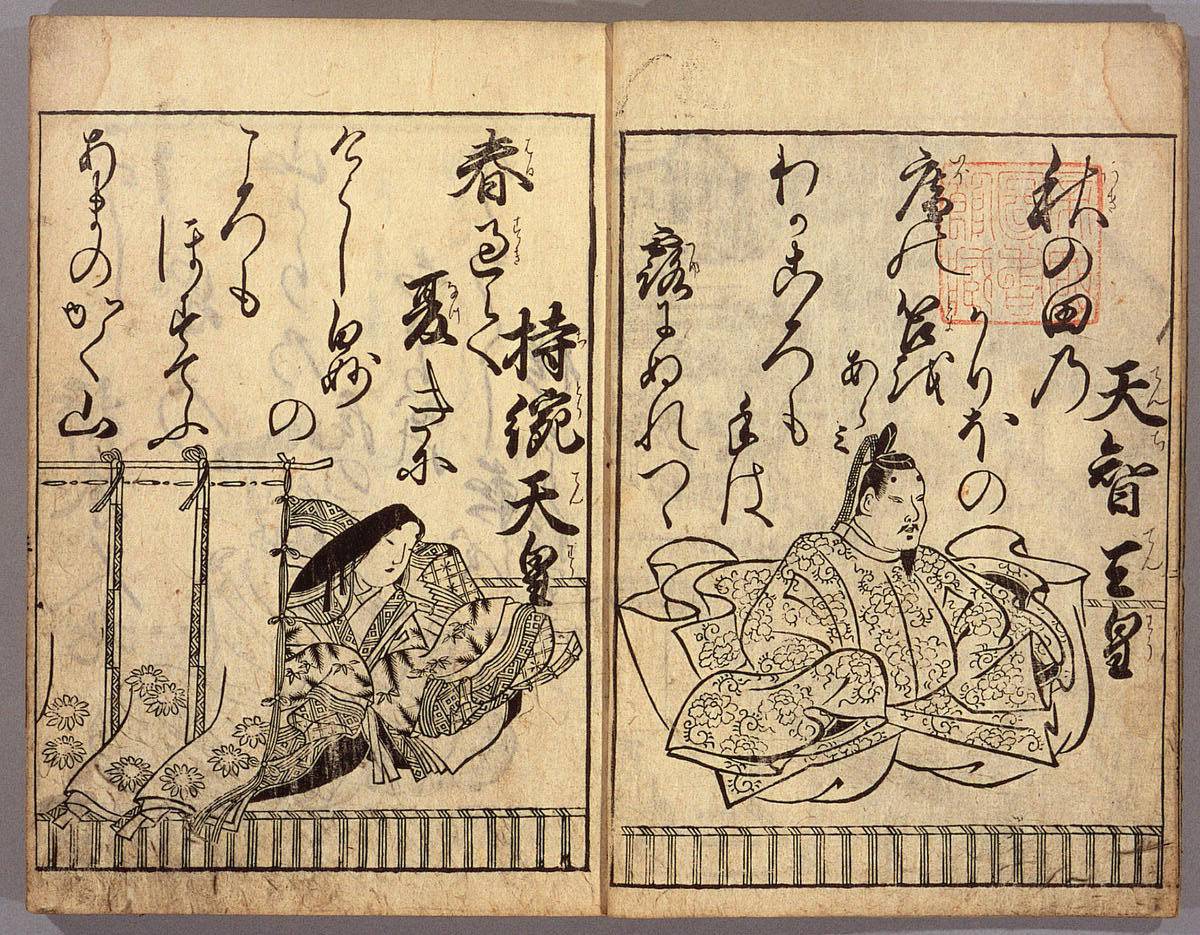 天智天皇
秋の田乃
かりほの
庵の苫越
あらミ
わかころも
手は
露にぬれつゝ
持統天皇
春過て
夏きに
けらし白妙
の
ころも
ほすてふ
あまのかく山